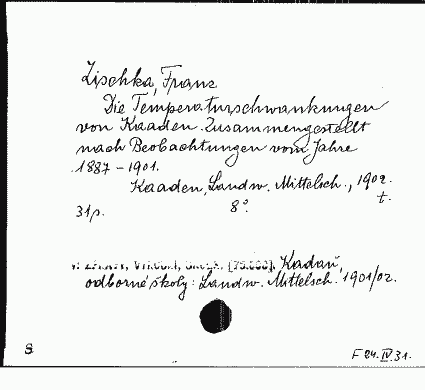 Zischka, Franz
Die Temperaturschwankungen
von Kaaden. Zusammengestellt
nach Beobachtungen vom Jahre
1887 - 1901.
Kaaden, Landw. Mittelsch., 1902.
31 p. 8°. t.
v: ZPRÁVY, VÝROČNÍ, ŠKOL. [75.000]. Kadaň,
odborné školy: Landw. Mittelsch. 1901/02.
S
F 24. IV. 31.